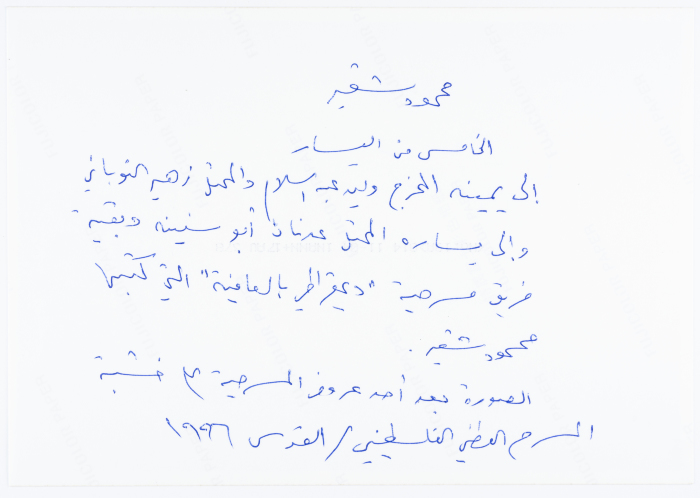 محمود شقير
الخامس من اليسار
إلى يمينه المخرج وليد عبد السلام والممثل زهير النوباني
وإلى يساره الممثل عدنان أبو سنينه وبقية
فريق مسرحية "ديمقراطي بالعافية" التي كتبها
محمود شقير.
الصورة بعد أحد عروض المسرحية على خشبة
المسرح الوطني الفلسطيني / القدس ١٩٩٦